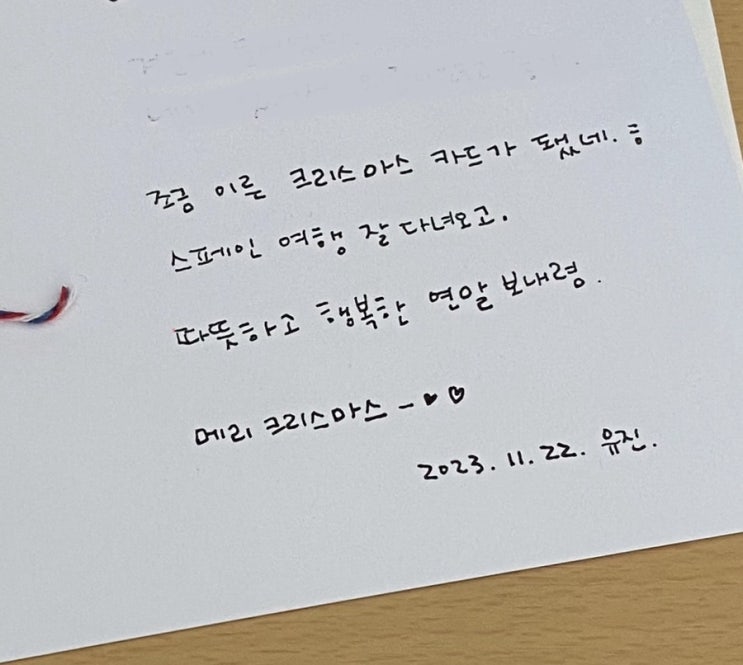 조금 이른 크리스마스 카드가 됐네. :)
스페인 여행 잘 다녀오고.
따뜻하고 행복한 연말 보내렴.
메리 크리스마스 - ♥ ♡
2023. 11. 22. 유진.